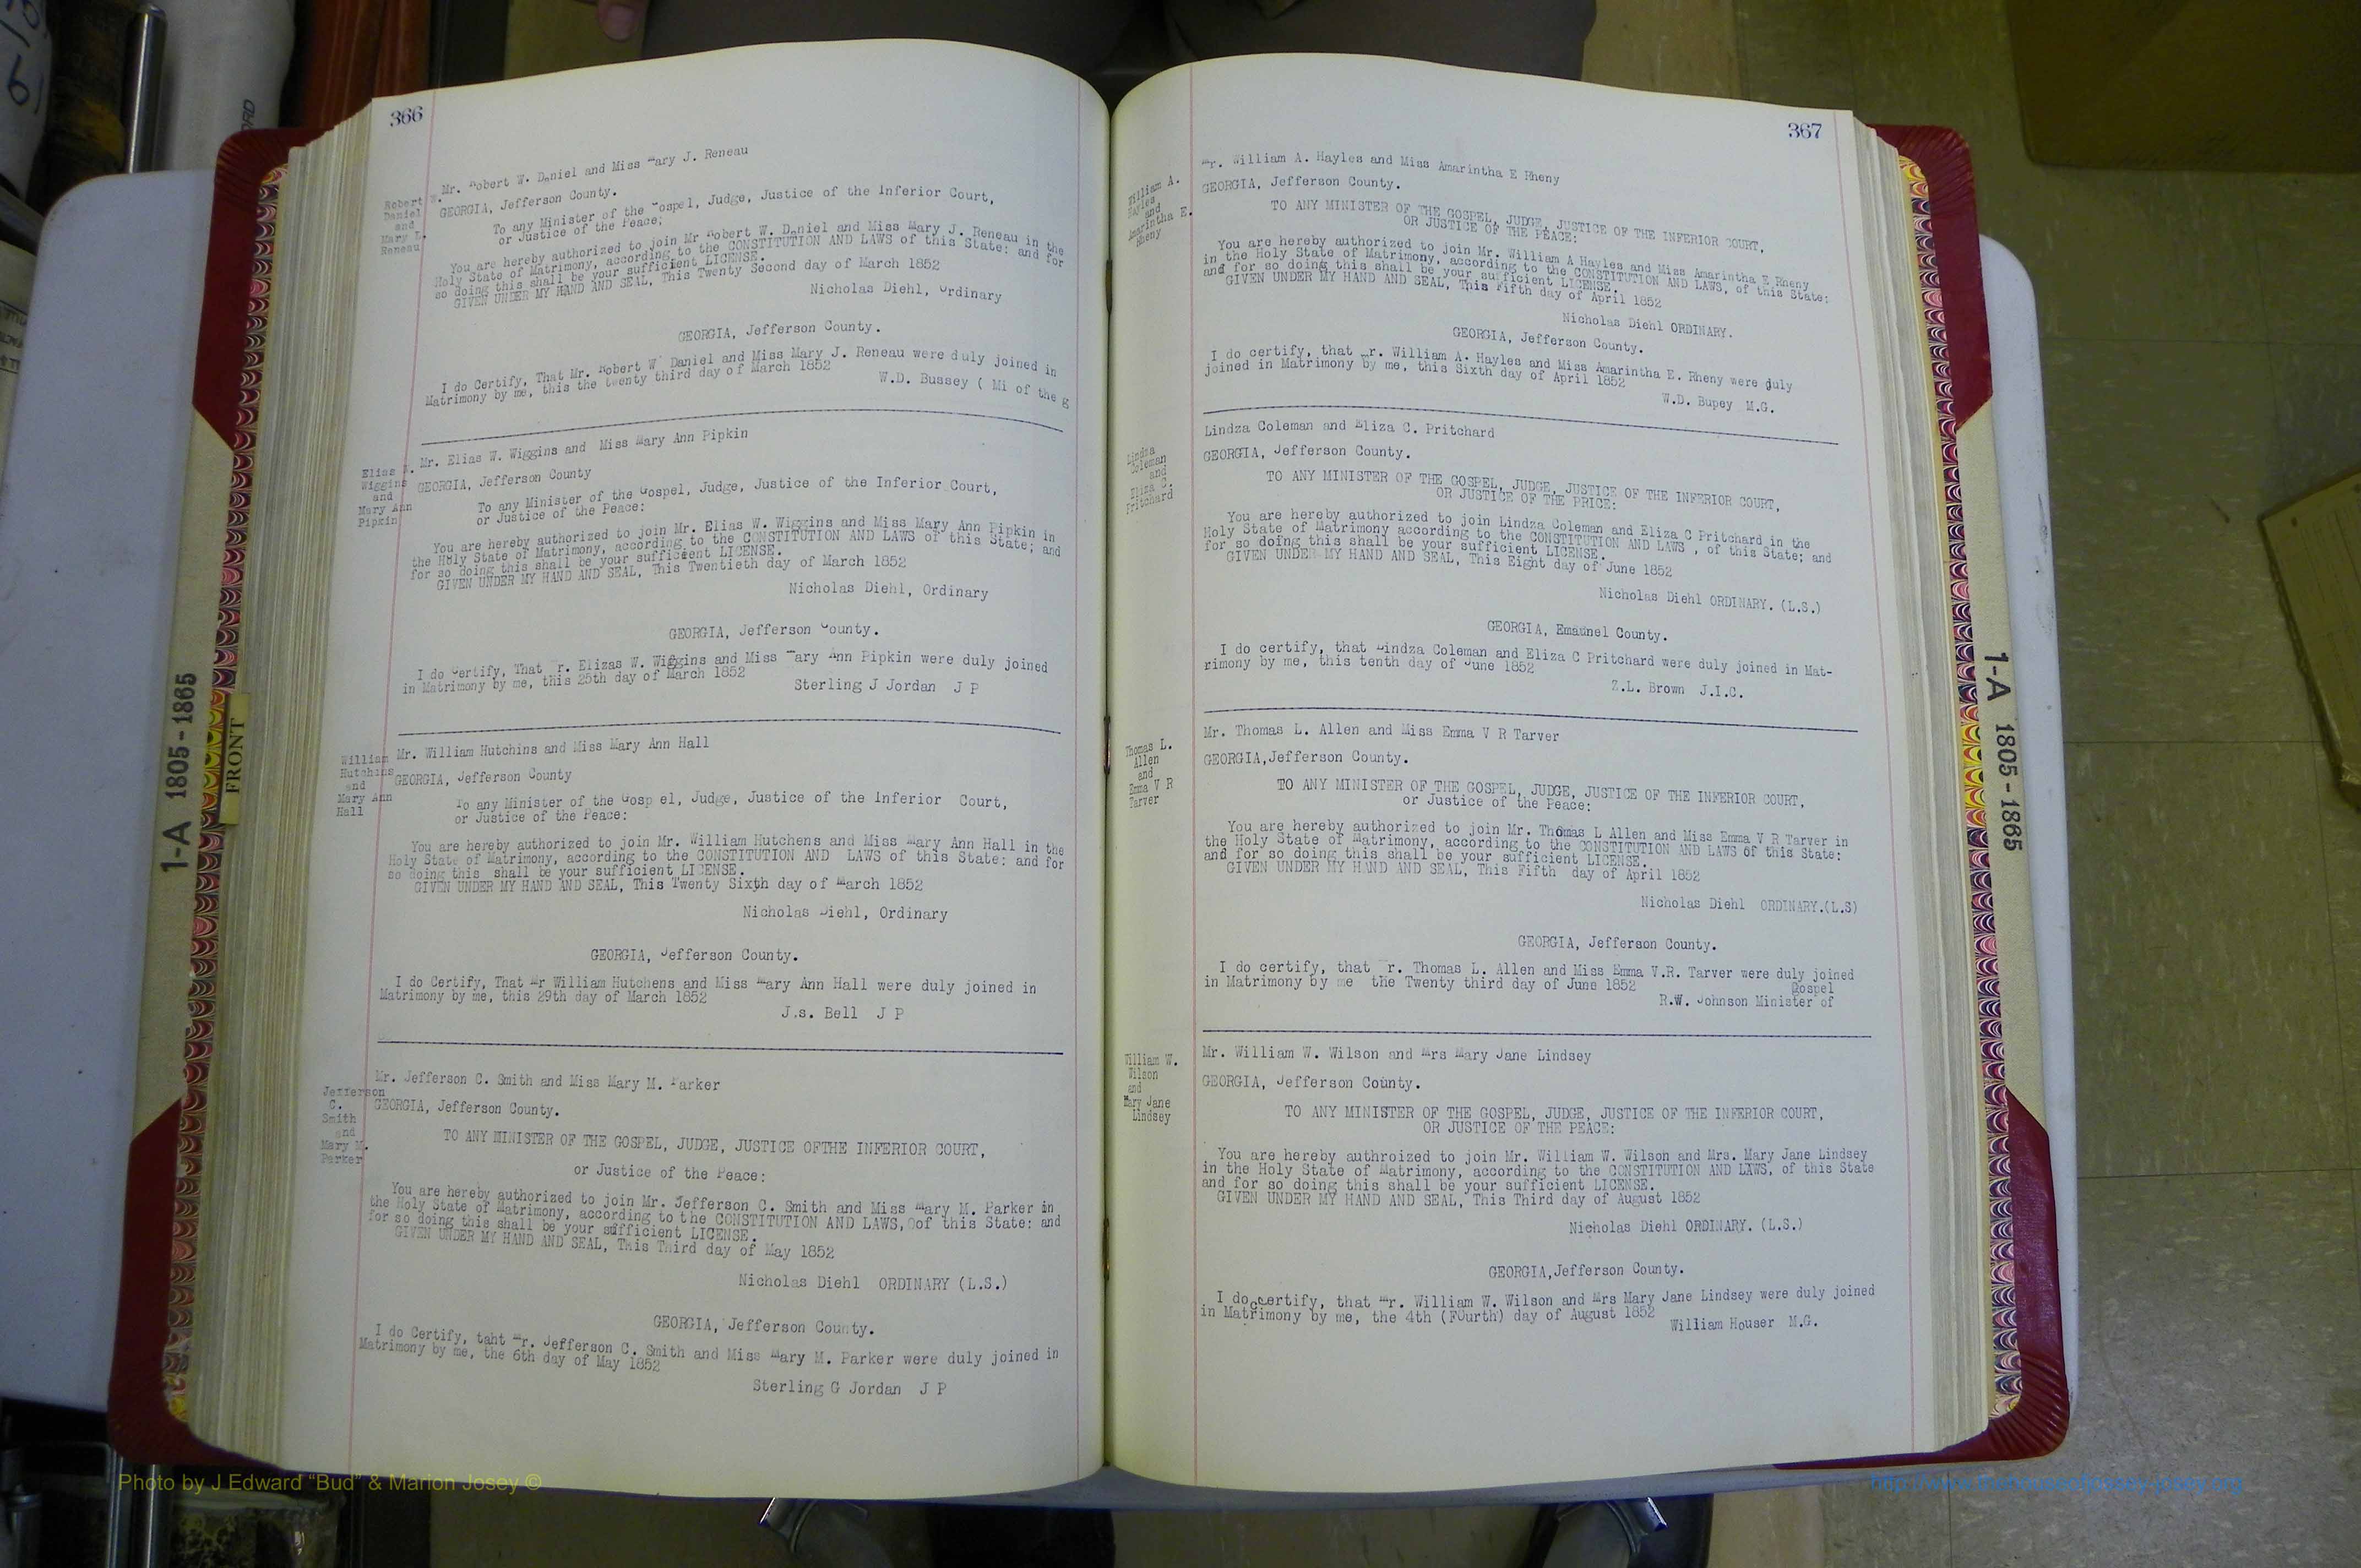 366
Mr. Robert W. Daniel and Miss Mary J. Reneau
Robert W.
Daniel
and
Mary L.
Reneau
GEORGIA, Jefferson County.
To any Minister of the Gospel, Judge, Justice of the Inferior Court,
or Justice of the Peace;
You are hereby authorized to join Mr Robert W. Daniel and Miss Mary J. Reneau in the
Holy State of Matrimony, according to the CONSTITUTION AND LAWS of this State: and for
so doing this shall be your sufficient LICENSE.
GIVEN UNDER MY HAND AND SEAL, This Twenty Second day of March 1852
Nicholas Diehl, Ordinary
GEORGIA, Jefferson County.
I do Certify, That Mr. Robert W Daniel and Miss Mary J. Reneau were duly joined in
Matrimony by me, this the twenty third day of March 1852
W.D. Bussey ( Mi of the g
Mr. Elias W. Wiggins and Miss Mary Ann Pipkin
Elias W.
Wiggins
and
Mary Ann
Pipkin
GEORGIA, Jefferson County
To any Minister of the Gospel, Judge, Justice of the Inferior Court,
or Justice of the Peace:
You are hereby authorized to join Mr. Elias W. Wiggins and Miss Mary Ann Pipkin in
the Holy State of Matrimony, according to the CONSTITUTION AND LAWS of this State; and
for so doing this shall be your sufficient LICENSE.
GIVEN UNDER MY HAND AND SEAL, This Twentieth day of March 1852
Nicholas Diehl, Ordinary
GEORGIA, Jefferson County.
I do Certify, That Mr. Elizas W. Wiggins and Miss Mary Ann Pipkin were duly joined
in Matrimony by me, this 25th day of March 1852
Sterling J Jordan J P
Mr. William Hutchins and Miss Mary Ann Hall
William
Hutchins
and
Mary Ann
Hall
GEORGIA, Jefferson County
To any Minister of the Gosp el, Judge, Justice of the Inferior Court,
or Justice of the Peace:
You are hereby authorized to join Mr. William Hutchens and Miss Mary Ann Hall in the
Holy State of Matrimony, according to the CONSTITUTION AND LAWS of this State: and for
so doing this shall be your sufficient LICENSE.
GIVEN UNDER MY HAND AND SEAL, This Twenty Sixth day of March 1852
Nicholas Diehl, Ordinary
GEORGIA, Jefferson County.
I do Certify, That Mr William Hutchens and Miss Mary Ann Hall were duly joined in
Matrimony by me, this 29th day of March 1852
J.s. Bell J P
Mr. Jefferson C. Smith and Miss Mary M. Parker
Jefferson
C.
Smith
and
Mary M.
Parker
GEORGIA, Jefferson County.
TO ANY MINISTER OF THE GOSPEL, JUDGE, JUSTICE OFTHE INFERIOR COURT,
or Justice of the Peace:
You are hereby authorized to join Mr. Jefferson C. Smith and Miss Mary M. Parker in
the Holy State of Matrimony, according to the CONSTITUTION AND LAWS, Oof this State: and
for so doing this shall be your sufficient LICENSE.
GIVEN UNDER MY HAND AND SEAL, This Third day of May 1852
Nicholas Diehl ORDINARY (L.S.)
GEORGIA, Jefferson County.
I do Certify, taht Mr. Jefferson C. Smith and Miss Mary M. Parker were duly joined in
Matrimony by me, the 6th day of May 1852
Sterling G Jordan J P
367
Mr. William A. Hayles and Miss Amarintha E Rheny
William A.
Hayles
and
Amarintha E.
Rheny
GEORGIA, Jefferson County.
TO ANY MINISTER OF THE GOSPEL, JUDGE, JUSTICE OF THE INFERIOR COURT,
OR JUSTICE OF THE PEACE:
You are hereby authorized to join Mr. William A Hayles and Miss Amarintha E Rheny
in the Holy State of Matrimony, according to the CONSTITUTION AND LAWS, of this State:
and for so doing this shall be your sufficient LICENSE.
GIVEN UNDER MY HAND AND SEAL, This Fifth day of April 1852
Nicholas Diehl ORDINARY.
GEORGIA, Jefferson County.
I do certify, that Mr. William A. Hayles and Miss Amarintha E. Rheny were duly
joined in Matrimony by me, this Sixth day of April 1852
W.D. Bupey M.G.
Lindza Coleman and Eliza C. Pritchard
Lindza
Coleman
and
Eliza C.
Pritchard
GEORGIA, Jefferson County.
TO ANY MINISTER OF THE GOSPEL, JUDGE, JUSTICE OF THE INFERIOR COURT,
OR JUSTICE OF THE PRICE:
You are hereby authorized to join Lindza Coleman and Eliza C Pritchard in the
Holy State of Matrimony according to the CONSTITUTION AND LAWS , of this State; and
for so doing this shall be your sufficient LICENSE.
GIVEN UNDER MY HAND AND SEAL, This Eight day of June 1852
Nicholas Diehl ORDINARY. (L.S.)
GEORGIA, Emaunel County.
I do certify, that Lindza Coleman and Eliza C Pritchard were duly joined in Mat-
rimony by me, this tenth day of June 1852
Z.L. Brown J.I.C.
Mr. Thomas L. Allen and Miss Emma V R Tarver
Thomas L.
Allen
and
Emma V R
Tarver
GEORGIA,Jefferson County.
TO ANY MINISTER OF THE GOSPEL, JUDGE, JUSTICE OF THE INFERIOR COURT,
or Justice of the Peace:
You are hereby authorized to join Mr. Thomas L Allen and Miss Emma V R Tarver in
the Holy State of Matrimony, according to the CONSTITUTION AND LAWS of this State:
and for so doing this shall be your sufficient LICENSE.
GIVEN UNDER MY HAND AND SEAL, This Fifth day of April 1852
Nicholas Diehl ORDINARY.(L.S)
GEORGIA, Jefferson County.
I do certify, that Mr. Thomas L. Allen and Miss Emma V.R. Tarver were duly joined
in Matrimony by me the Twenty third day of June 1852
Gospel
R.W. Johnson Minister of
Mr. William W. Wilson and Mrs Mary Jane Lindsey
William W.
Wilson
and
Mary Jane
Lindsey
GEORGIA, Jefferson County.
TO ANY MINISTER OF THE GOSPEL, JUDGE, JUSTICE OF THE INFERIOR COURT,
OR JUSTICE OF THE PEACE:
You are hereby authroized to join Mr. William W. Wilson and Mrs. Mary Jane Lindsey
in the Holy State of Matrimony, according to the CONSTITUTION AND LAWS, of this State
and for so doing this shall be your sufficient LICENSE.
GIVEN UNDER MY HAND AND SEAL, This Third day of August 1852
Nicholas Diehl ORDINARY. (L.S.)
GEORGIA,Jefferson County.
I do certify, that Mr. William W. Wilson and Mrs Mary Jane Lindsey were duly joined
in Matrimony by me, the 4th (FOurth) day of August 1852
William Houser M.G.
1-A 1805-1865
FRONT
1-A 1805-1865
Photo by J Edward “Bud” & Marion Josey ©
http://www.thehouseofjossey-josey.org